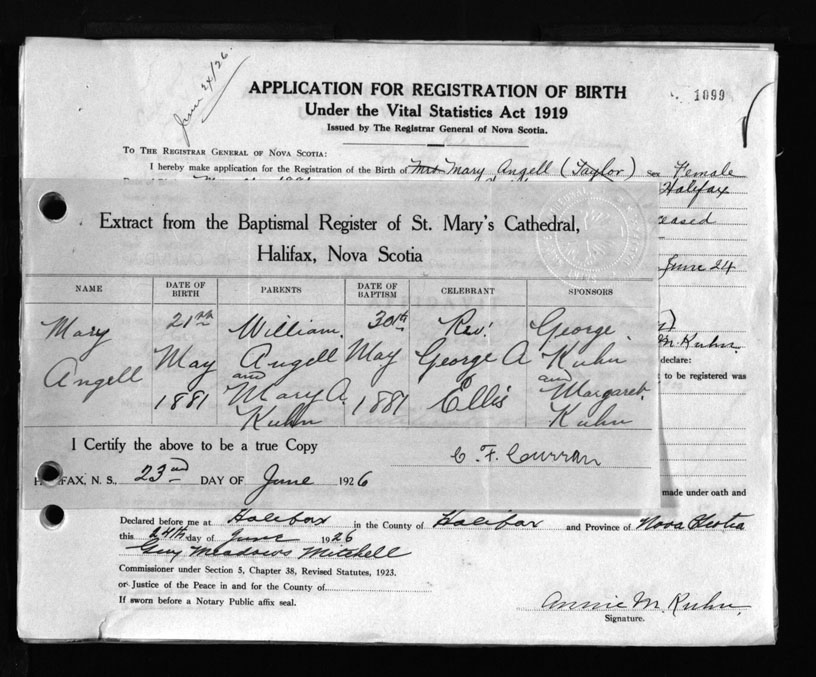 June 24/26.
APPLICATION FOR REGISTRATION OF BIRTH
1099
Under the Vital Statistics Act 1919
Issued by The Registrar General of Nova Scotia.
TO THE REGISTRAR GENERAL OF NOVA SCOTIA:
I hereby make application for the Registration of the Birth of Mrs Mary Angell (Taylor) Sex Female
Halifax
eased
June 24
M. Kuhn.
declare:
to be registered was
made under oath and
Extract from the Baptismal Register of St. Mary's Cathedral,
Halifax, Nova Scotia
NAME DATE OF BIRTH PARENTS DATE OF BAPTISM CELEBRANT SPONSORS
Mary 21st William 30th Rev. George
Angell May Angell May George A Kuhn
and and
1881 Mary A. 1881 Ellis Margaret
Kuhn Kuhn
I Certify the above to be a true Copy
C. F. Curran
HALIFAX, N. S., 23rd DAY OF June 1926
Declared before me at Halifax in the County of Halifax and Province of Nova Scotia
this 24th day of June 1926
Guy Meadows Mitchell
Commissioner under Section 5, Chapter 38, Revised Statutes, 1923.
or Justice of the Peace in and for the County of
If sworn before a Notary Public affix seal.
Annie M. Kuhn
Signature.